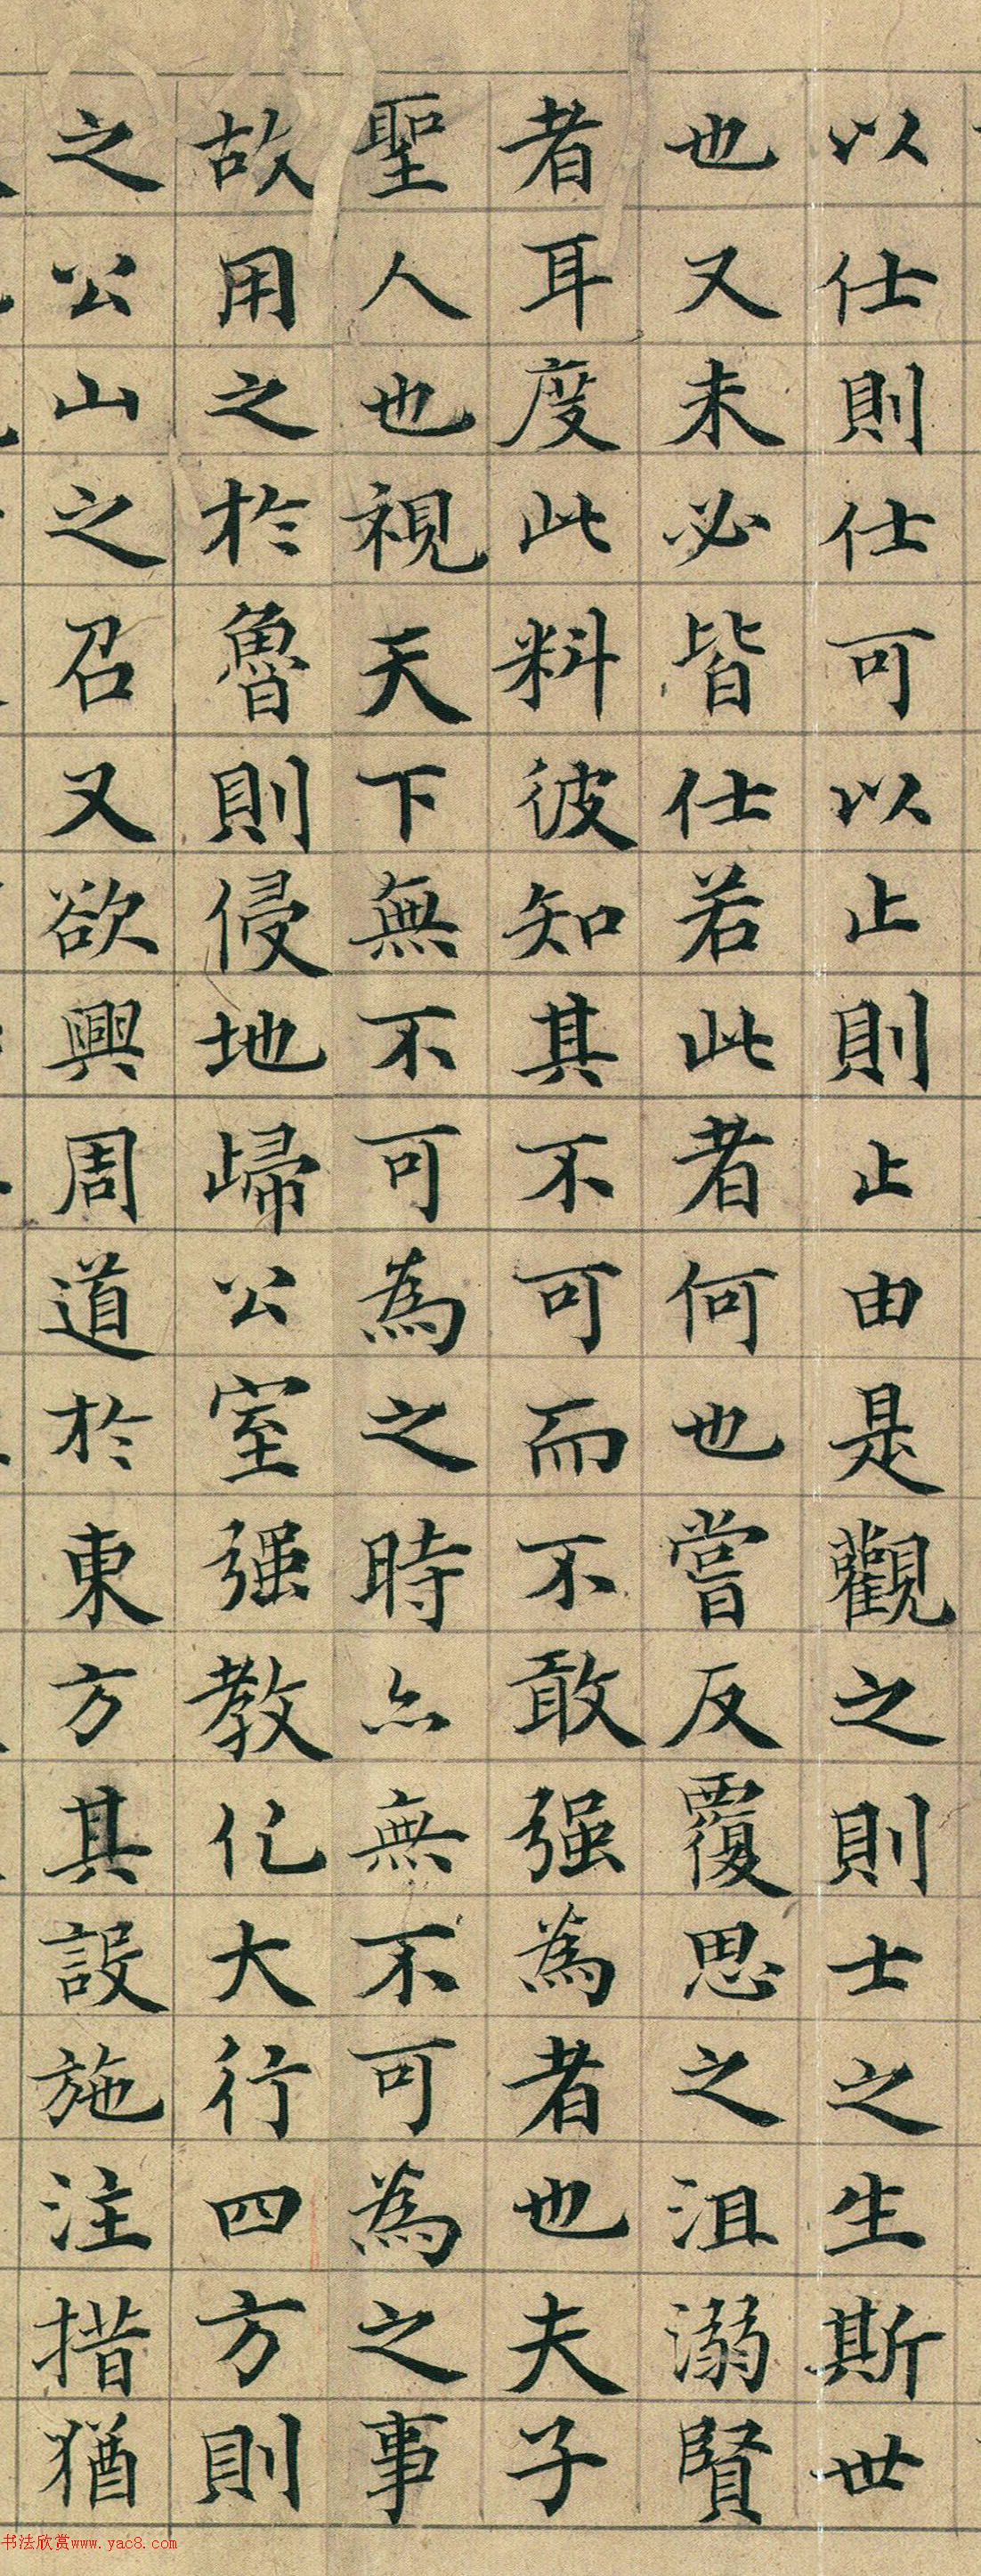 以仕則仕可以止則止由是觀之則士之生斯世
也又未必皆仕若此者何也嘗反覆思之沮溺賢
者耳度此料彼知其不可而不敢强為者也夫子
聖人也視天下無不可為之時亦無不可為之事
故用之於魯則侵地歸公室强教化大行四方則
之公山之召又欲興周道於東方其設施注措猶
书法欣赏www.yac8.com